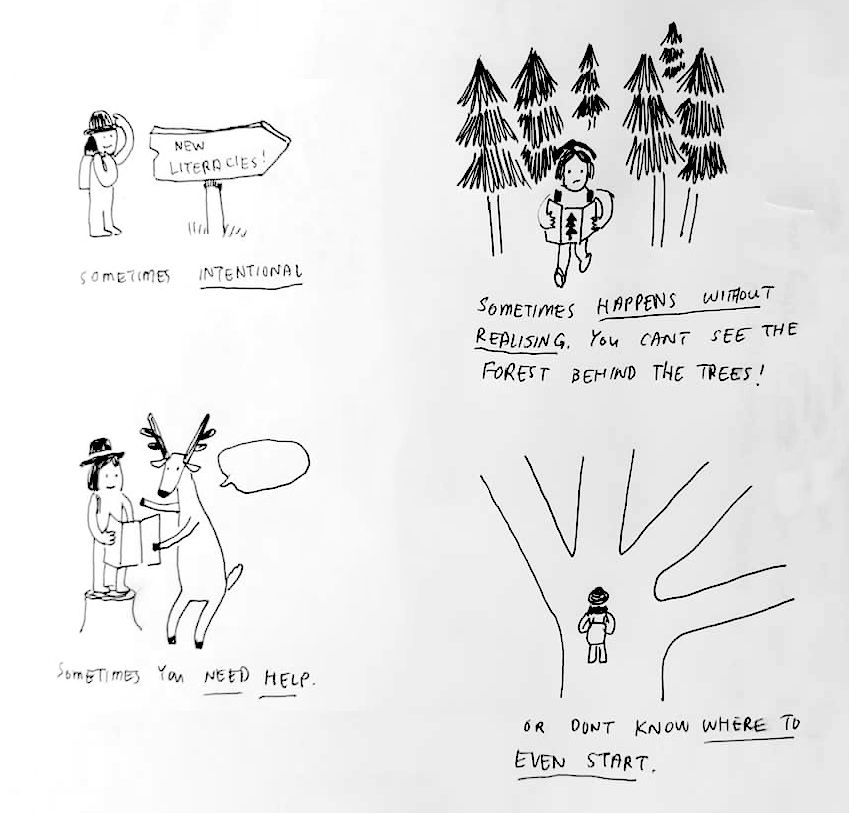 NEW
LITERACIES!
SOMETIMES INTENTIONAL
SOMETIMES HAPPENS WITHOUT
REALISING. YOU CANT SEE THE
FOREST BEHIND THE TREES!
SOMETIMES YOU NEED HELP.
OR DONT KNOW WHERE TO
EVEN START.